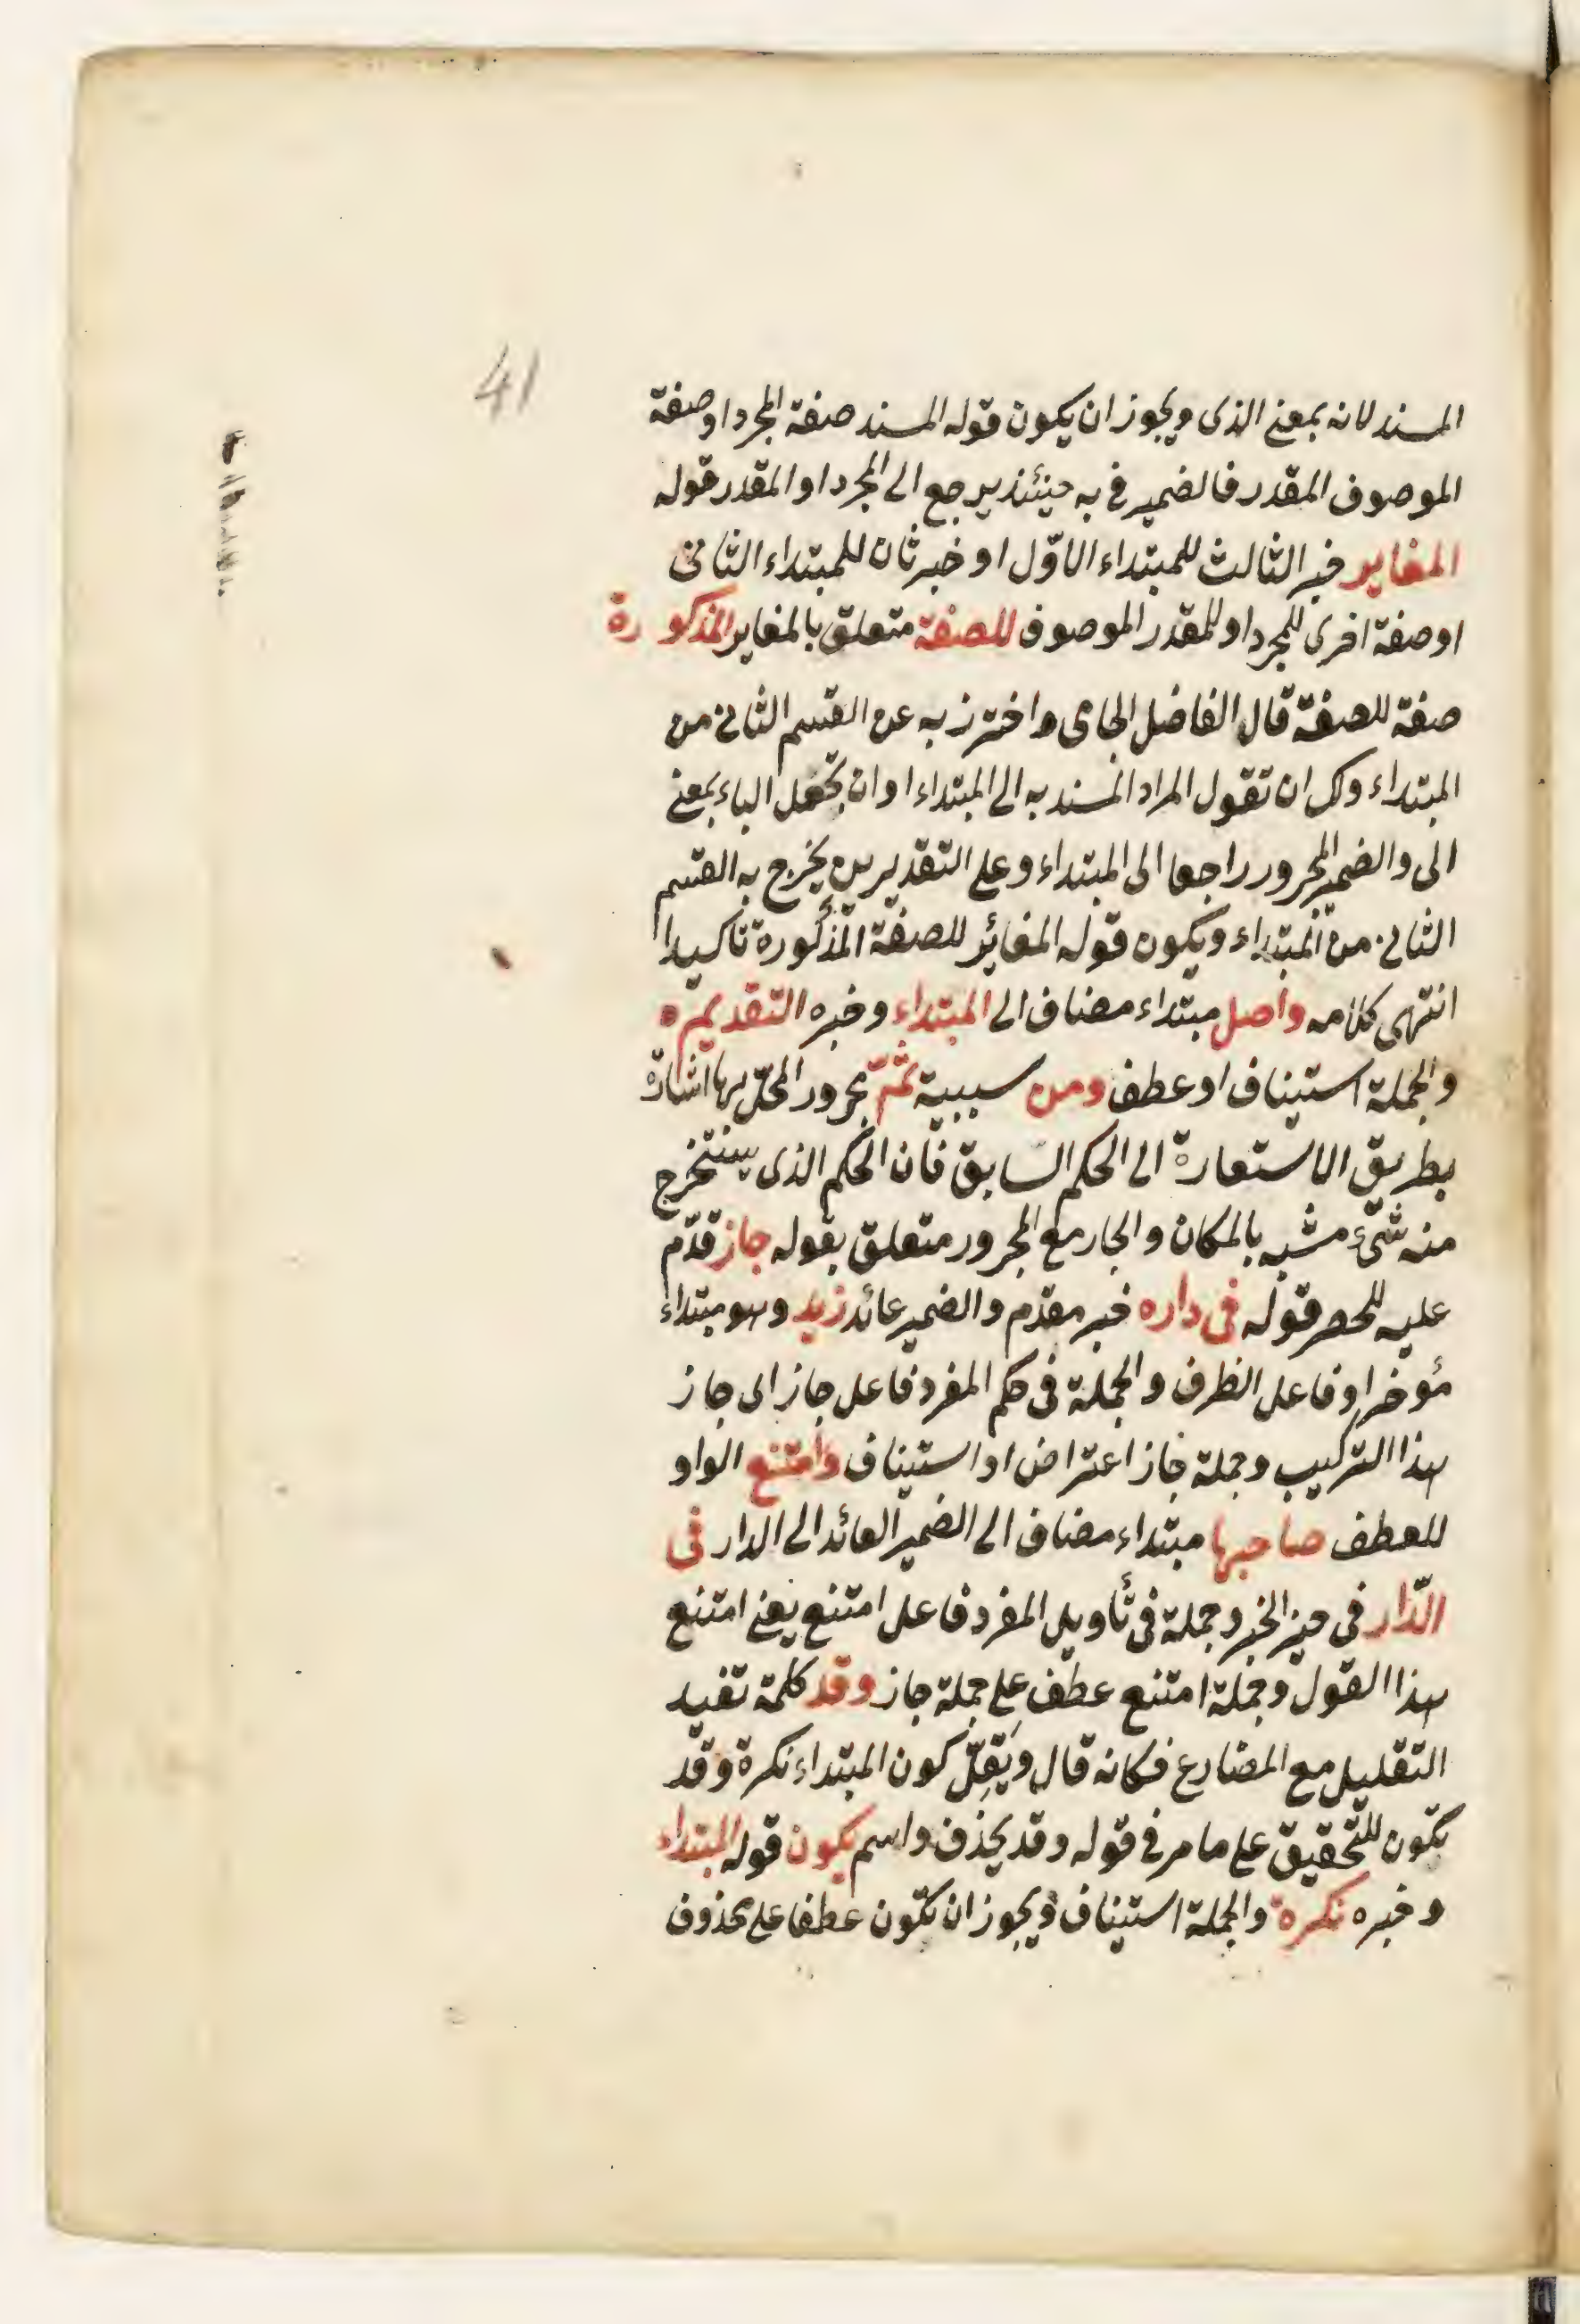 41
المسند لانه بمعنى الذى ويجوز ان يكون قوله المسند صفة المجرد او صفة
الموصوف المقدر فالضمير فى به حينئذ يرجع الى المجرد او المقدر قوله
المغاير خبر الثالث للمبتداء الاوّل او خبر ثان للمبتداء الثانى
او صفة اخرى للمجرد او للمقدر الموصوف للصفة متعلق بالمغاير المذكورة
صفة للصفة قال الفاضل الجامى واحترز به عن القسم الثانى من
المبتداء ولك ان تقول المراد المسند به الى المبتداء او ان تجعل الباء بمعنى
الى والضمير المجرور راجعا الى المبتداء وعلى التقديرين يخرج به القسم
الثانى من المبتداء ويكون قوله المغائر للصفة المذكورة تأكيدا
انتهى كلامه واصل مبتداء مضاف الى المبتداء وخبره التقديم ه
والجملة استيناف او عطف ومن سببية ثمّ مجرور المحلّ بها اشارة
بطريق الاستعارة الى الحكم السابق فان الحكم الذى يستخرج
منه شئ مشبه بالمكان والجار مع المجرور متعلق بقوله جاز قدّم
عليه للحصر قوله فى داره خبر مقدم والضمير عائد زيد وهو مبتداء
مؤخر او فاعل الظرف والجملة فى حكم المفرد فاعل جاز اى جاز
هذا التركيب وجملة جاز اعتراض او استيناف وامتنع الواو
للعطف صاحبها مبتداء مضاف الى الضمير العائد الى الدار فى
الدّار فى حيز الخبر وجملة فى تأويل المفرد فاعل امتنع يعنى امتنع
هذا القول وجملة امتنع عطف على جملة جاز وقد كلمة تفيد
التقليل مع المضارع فكانه قال ويَقِلّ كون المبتداء نكرة وقد
تكون للتحقيق على ما مر فى قوله وقد يحذف واسم يكون قوله المبتداء
وخبره نكرة والجملة استيناف ويجوز ان تكون عطفا على محذوف